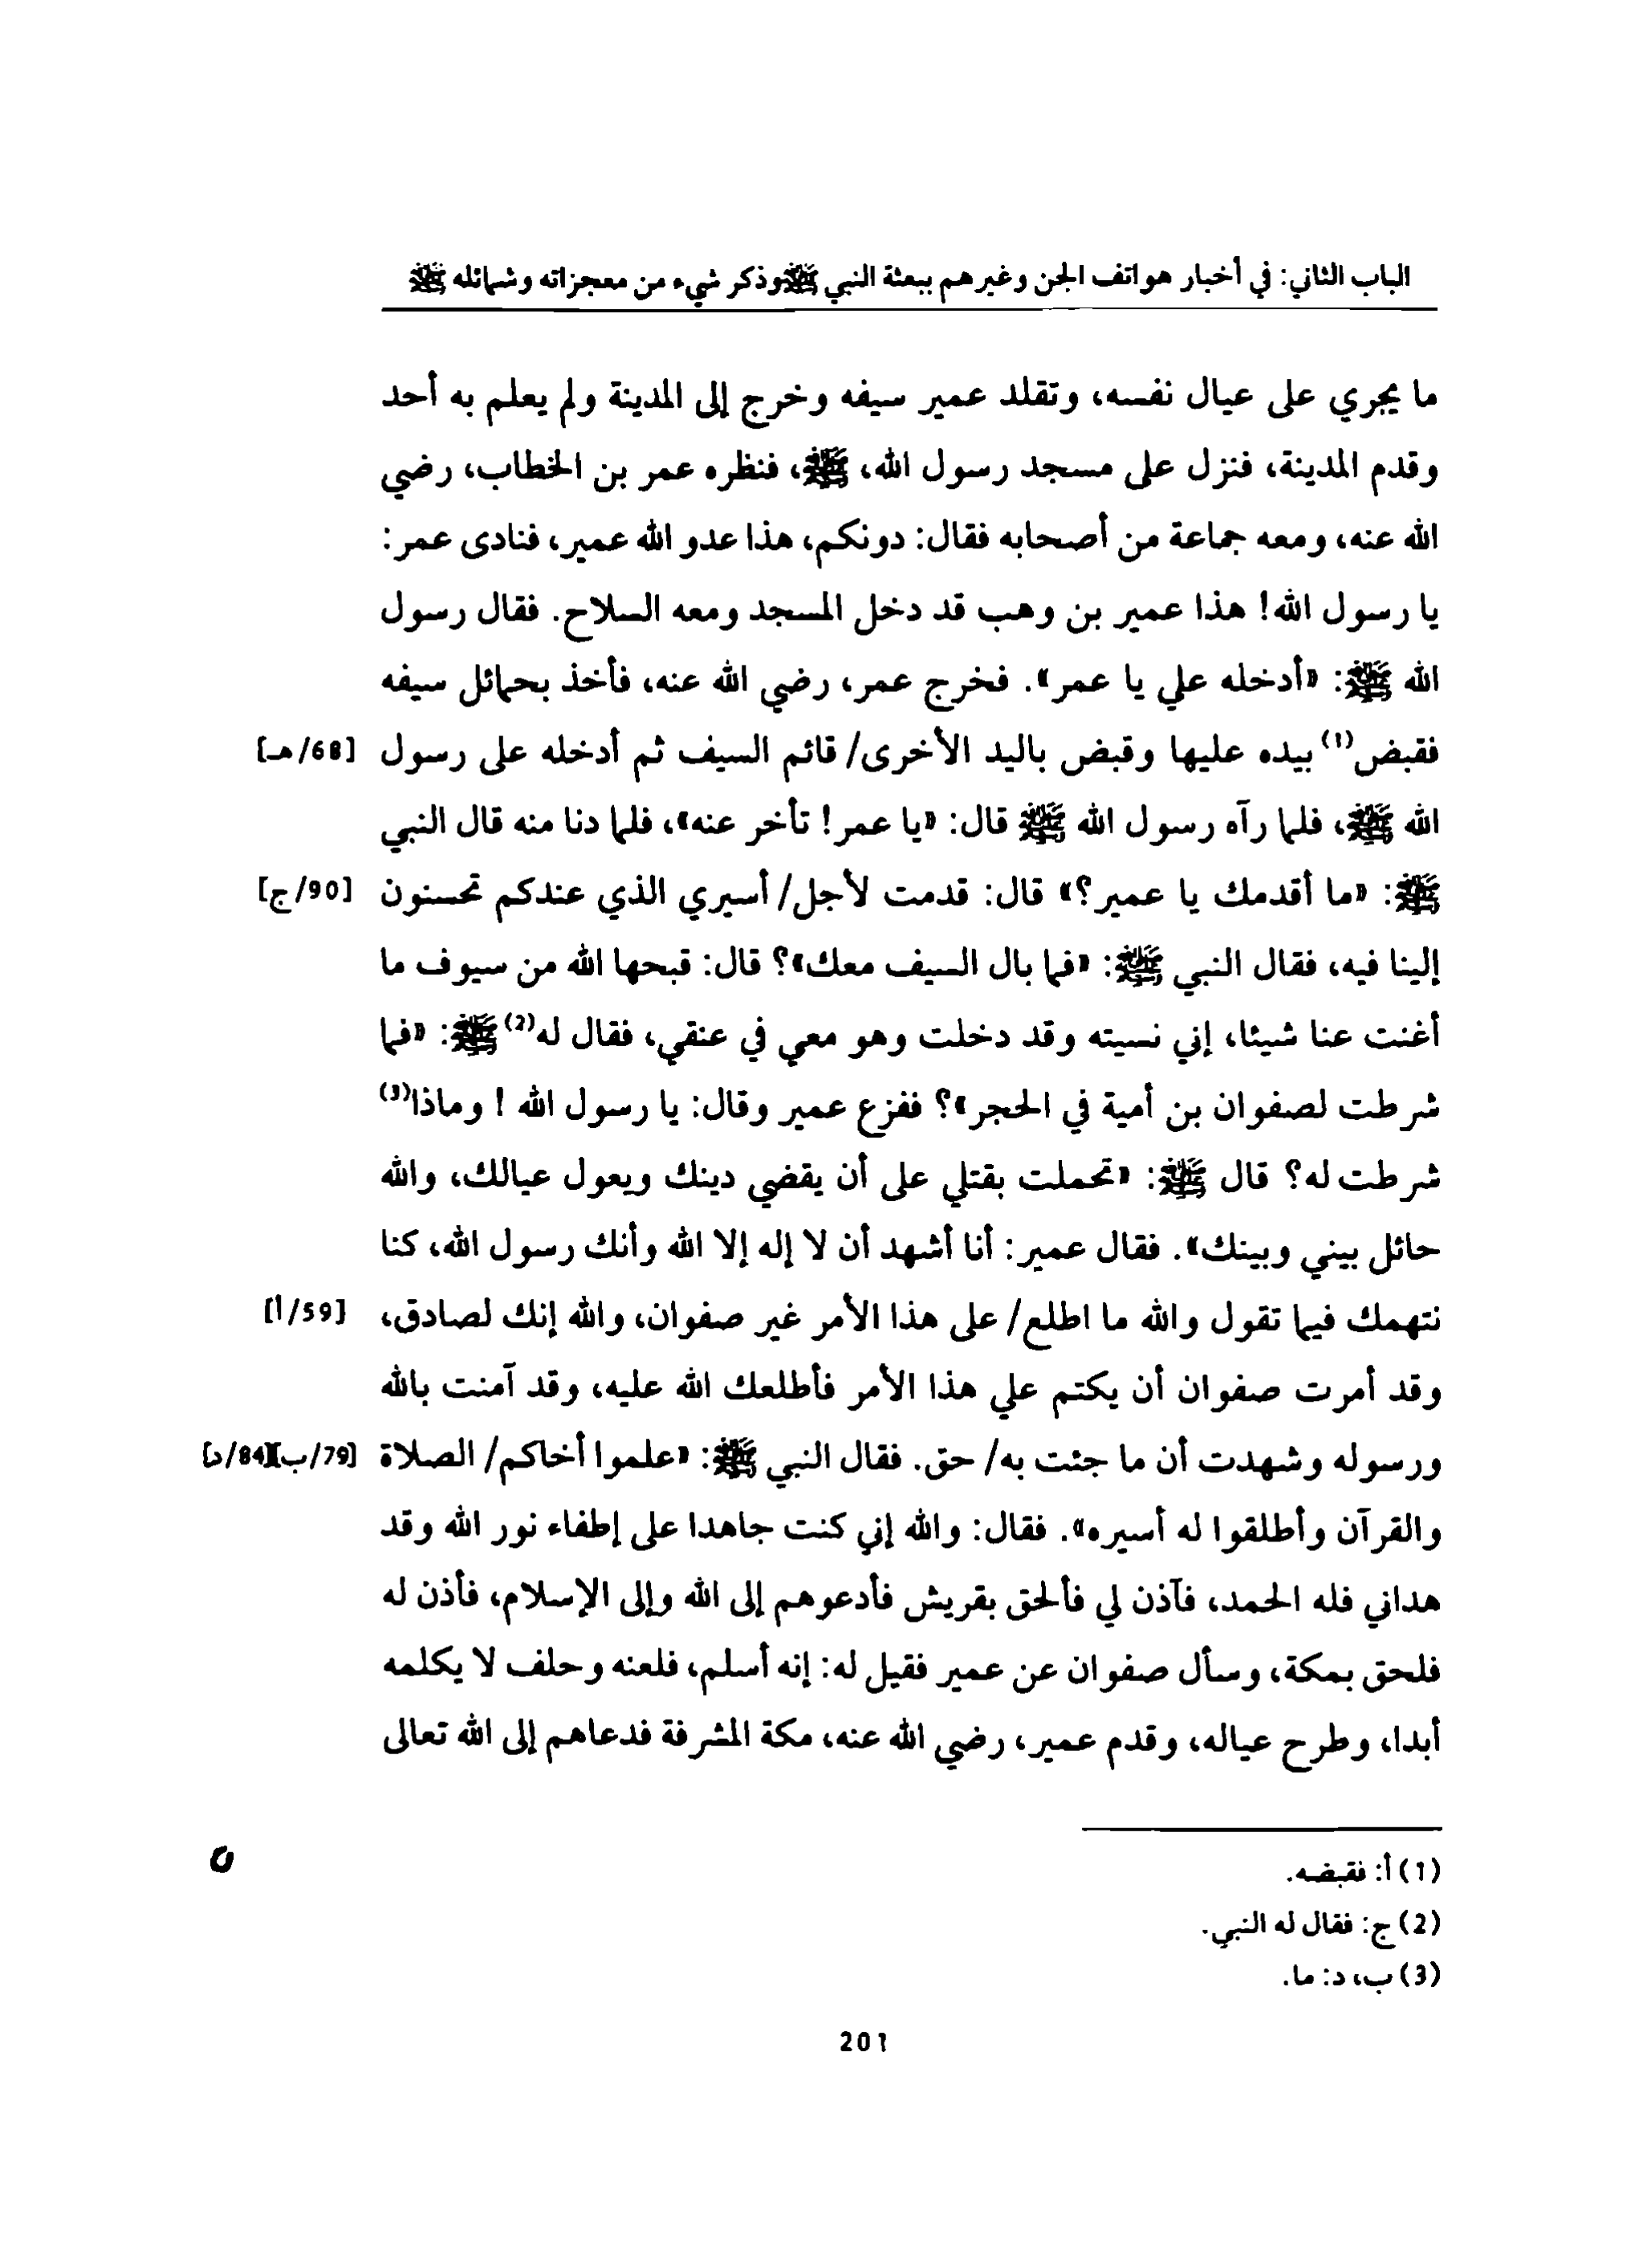 الباب الثاني: في أخبار هواتف الجن وغيرهم ببعثة النبي ﷺ وذكر شيء من معجزاته وشمائله ﷺ
ما يجري على عيال نفسه، وتقلد عمير سيفه وخرج إلى المدينة ولم يعلم به أحد
وقدم المدينة، فنزل على مسجد رسول الله، ﷺ، فنظره عمر بن الخطاب، رضي
الله عنه، ومعه جماعة من أصحابه فقال: دونكم، هذا عدو الله عمير، فنادى عمر:
يا رسول الله! هذا عمير بن وهب قد دخل المسجد ومعه السلاح. فقال رسول
الله ﷺ: «أدخله علي يا عمر». فخرج عمر، رضي الله عنه، فأخذ بحمائل سيفه
فقبض(1) بيده عليها وقبض باليد الأخرى/ قائم السيف ثم أدخله على رسول [68/هـ]
الله ﷺ، فلما رآه رسول الله ﷺ قال: «يا عمر! تأخر عنه»، فلما دنا منه قال النبي
ﷺ: «ما أقدمك يا عمير؟» قال: قدمت لأجل/ أسيري الذي عندكم تحسنون [90/ج]
إلينا فيه، فقال النبي ﷺ: «فما بال السيف معك»؟ قال: قبحها الله من سيوف ما
أغنت عنا شيئا، إني نسيته وقد دخلت وهو معي في عنقي، فقال له(2) ﷺ: «فما
شرطت لصفوان بن أمية في الحجر»؟ ففزع عمير وقال: يا رسول الله ! وماذا(3)
شرطت له؟ قال ﷺ: «تحملت بقتلي على أن يقضي دينك ويعول عيالك، والله
حائل بيني وبينك». فقال عمير: أنا أشهد أن لا إله إلا الله وأنك رسول الله، كنا
نتهمك فيما تقول والله ما اطلع/ على هذا الأمر غير صفوان، والله إنك لصادق، [59/أ]
وقد أمرت صفوان أن يكتم علي هذا الأمر فأطلعك الله عليه، وقد آمنت بالله
ورسوله وشهدت أن ما جئت به/ حق. فقال النبي ﷺ: «علموا أخاكم/ الصلاة [79/ب][84/د]
والقرآن وأطلقوا له أسيره». فقال: والله إني كنت جاهدا على إطفاء نور الله وقد
هداني فله الحمد، فآذن لي فألحق بقريش فأدعوهم إلى الله وإلى الإسلام، فأذن له
فلحق بمكة، وسأل صفوان عن عمير فقيل له: إنه أسلم، فلعنه وحلف لا يكلمه
أبدا، وطرح عياله، وقدم عمير، رضي الله عنه، مكة المشرفة فدعاهم إلى الله تعالى
(1) أ: فقبضه.
(2) ج: فقال له النبي.
(3) ب، د: ما.
201